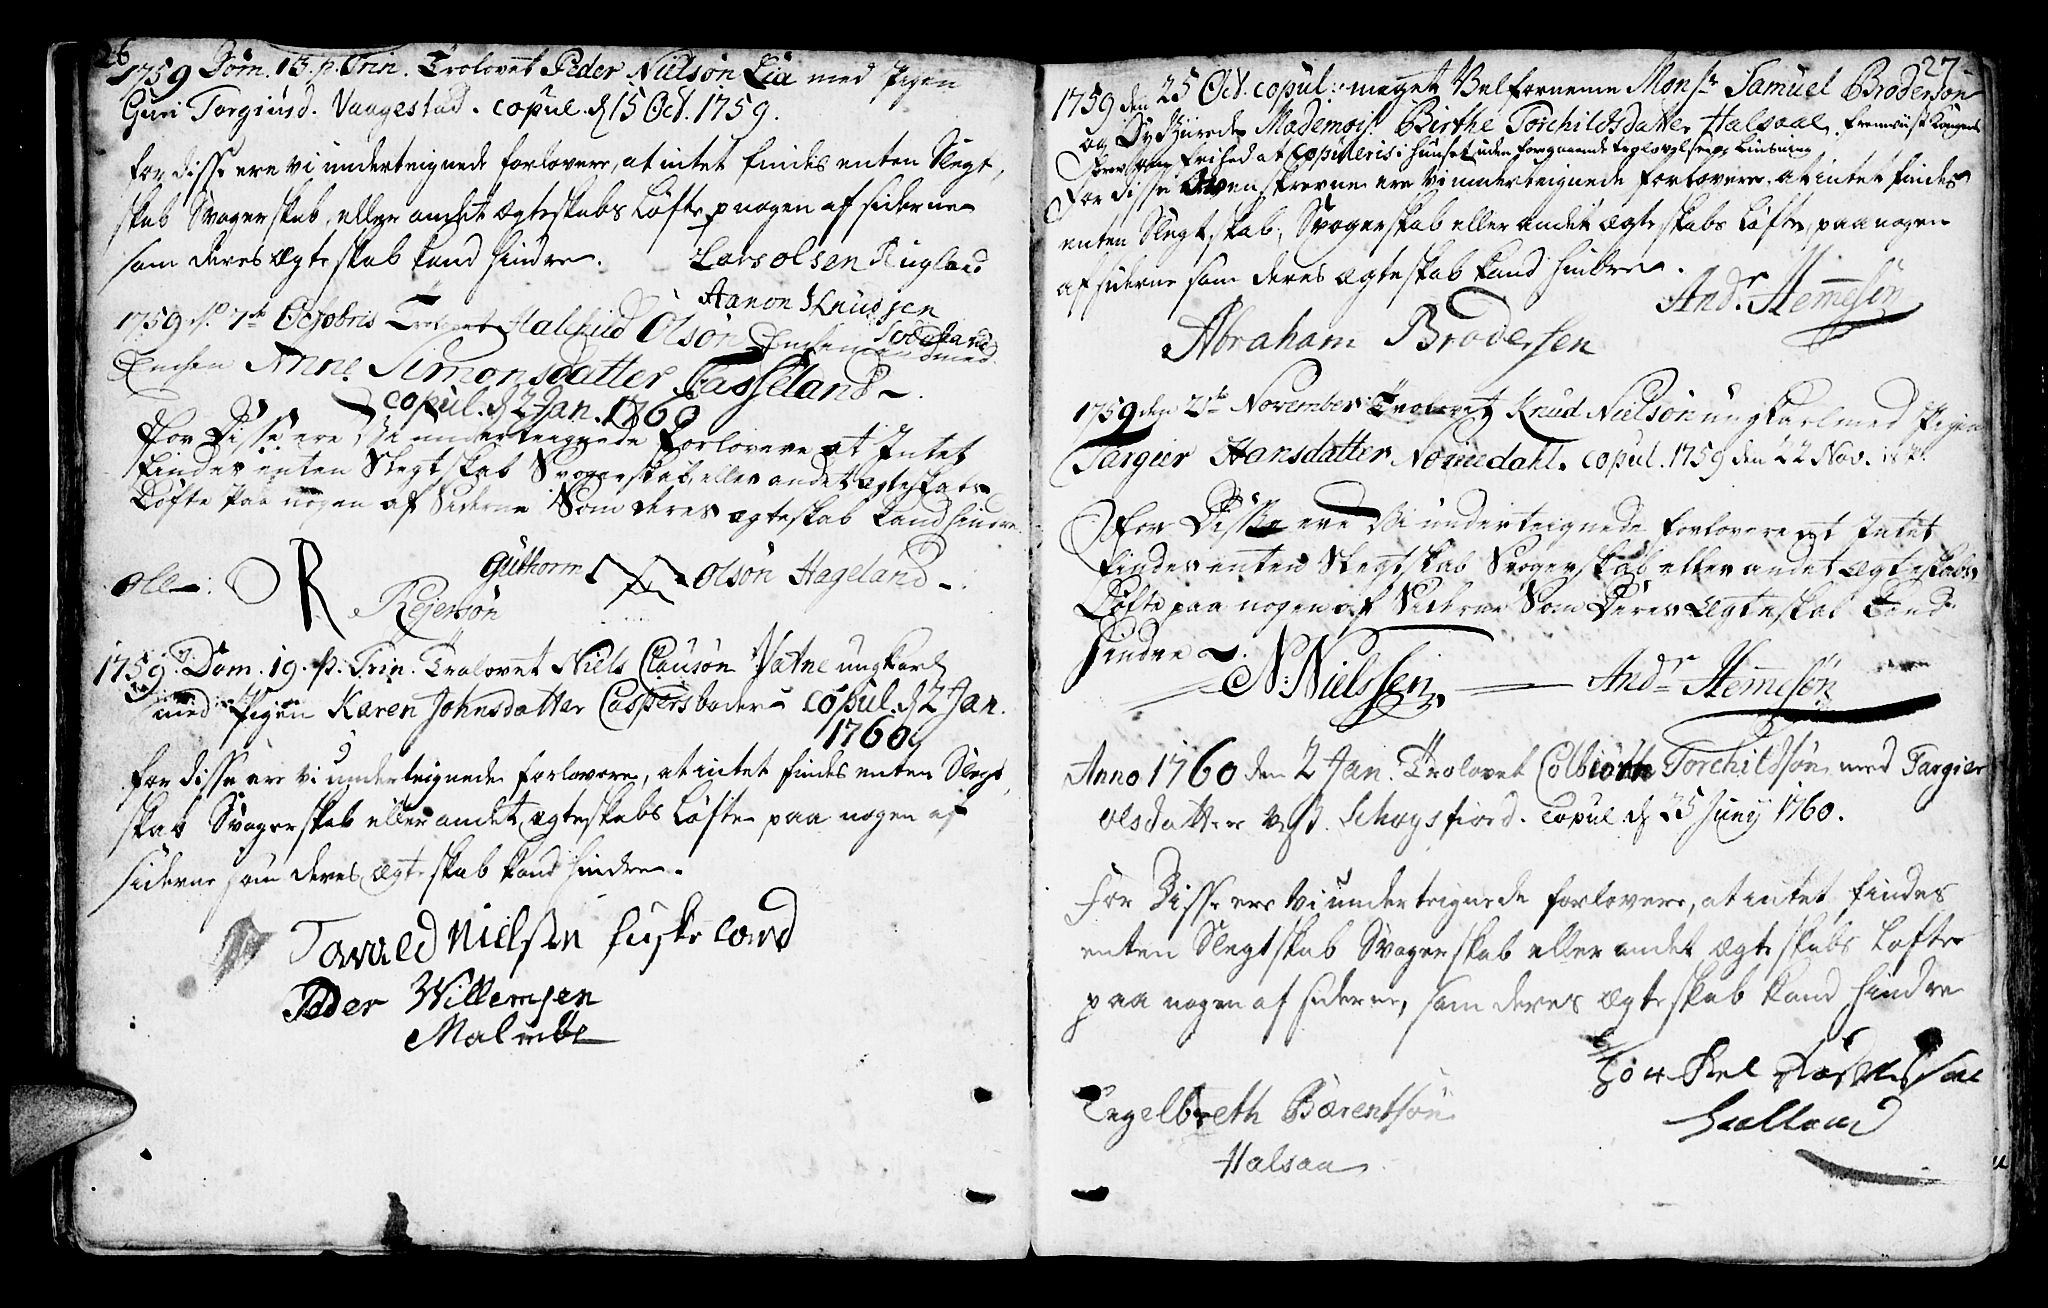 26
1759 Dom. 15. p. Trin. Trolovet Peder Nielsøn Lia med Pigen
Guri Torgiusd. Vaagestad. copul. d. 15 Oct. 1759.
for disse ere vi underteignede forlovere, at intet findes enten Slegt,
skab Svogerskab, eller andet Ægteskabs Løfte p nogen af siderne
som deres Ægteskab kand hindre. Lars olsen Kugland
Aanon Knudsen
1759 d. 7de Octobris Trolovet Halfuid Olsøn Enchemand med
Enchen Anne Simonsdatter Fasseland
copul. d. 2 Jan. 1760
For Disse ere Vi underteignede Forlovere at Intet
Findes enten Slegtskab Svogerskab eller andet Ægteskabs
Løfte Paa nogen af Siderne Som deres ægteskab Kand hindre
Olle O R Rejersøn
Guthorm Olsøn Hageland
1759. Dom. 19. p. Trin. Trolovet Niels Clausøn Vatne ungkarl
med Pigen Karen Johnsdatter Caspersbader copul. d. 2 Jan.
1760
for disse ere vi underteignede forlovere, at intet findes enten Slegt,
skab Svogerskab eller andet, ægteskabs Løfte paa nogen af
siderne som deres Ægteskab kand hindre.
Tarald Nielsen
Peder Willemsen
27
1759 den 25 Oct. copul: meget Velfornemme Monsr Samuel Brodersøn
og Dydziirede Mademoisl Birthe Torchildsdatter Halsaae. fremviist Kongens
frihed at copuleris i Huuset uden foregaaende
For disse ere vi underteignede forlovere at intet findes
enten Slegtskab, Svogerskab eller andet Ægteskabs Løfte, paa nogen
af siderne som deres Ægteskab kand hindre.
Andr Hemesen
Abraham Brodersen
1759 den 2de November Trolovet Knud Nielsøn ungkarl med Pigen
Targier Hansdatter Nomedahl. copul. 1759 den 22 Nov.
For Disse ere Vi underteignede forlovere at Intet
Findes enten Slegtskab Svogerskab eller andet Ægteskabs
Løfte paa nogen af Siderne Som Deres Ægteskab Kand
Hindre
N: Nielssen Andr Hemesøn
Anno 1760 den 2 Jan. Trolovet Colbiørn Torchildsøn med Targier
olsdatter Schogsfiord. copul d. 25 Junij 1760.
For Disse ere Vi underteignede forlovere, at intet findes
enten Slegtskab Svogerskab eller andet Ægteskabs Løfte
paa nogen af siderne, som deres Ægteskab kand hindre
Engelbreth Bærentsøn
Halsaa